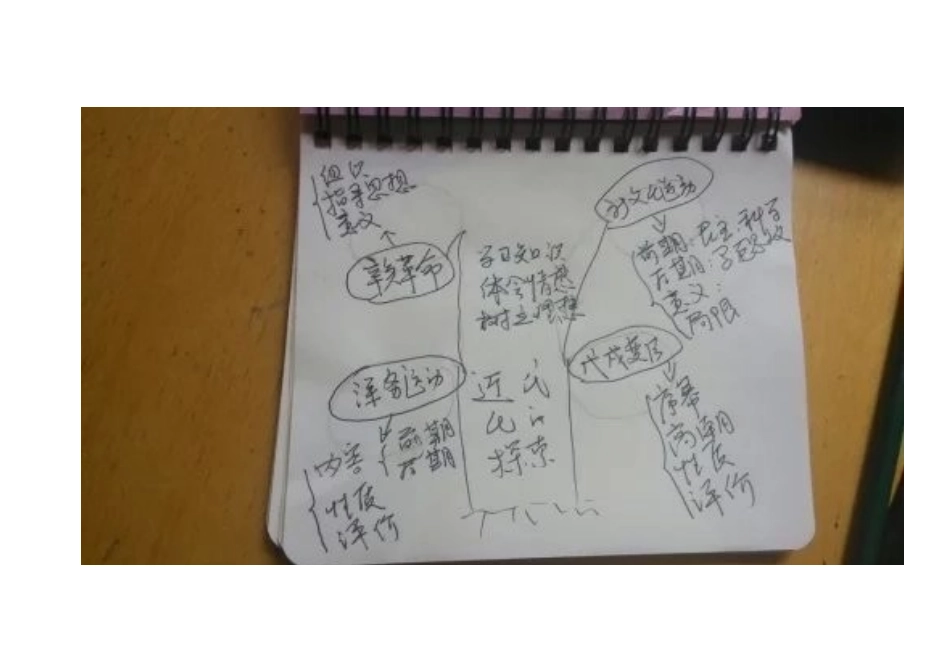 组织
指导思想
意义
辛亥革命
洋务运动
前期
后期
内容
性质
评价
学习知识
体会情感
树立理想
近代
化的
探索
新文化运动
前期:民主、科学
后期:
意义:
局限
戊戌变法
序幕
高潮
性质
评价